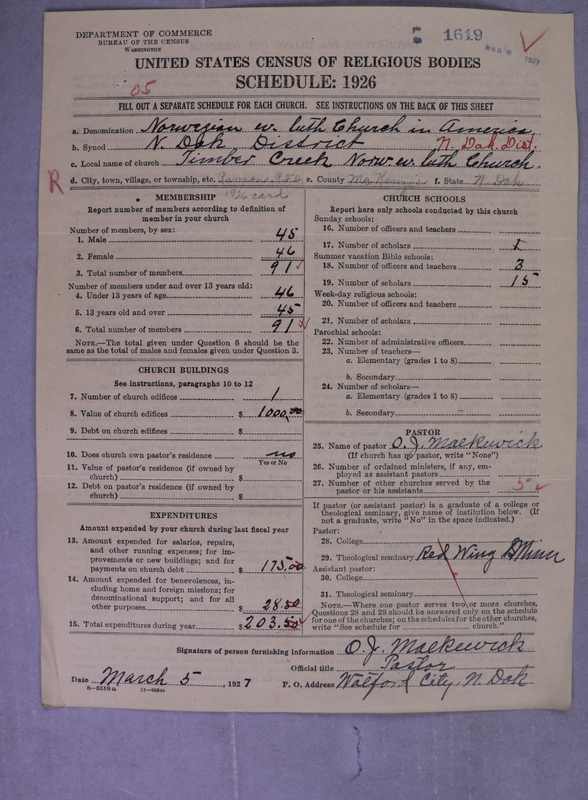 DEPARTMENT OF COMMERCE
BUREAU OF THE CENSUS
WASHINGTON
1619
MAR 8 1927
UNITED STATES CENSUS OF RELIGIOUS BODIES
SCHEDULE: 1926
05
FILL OUT A SEPARATE SCHEDULE FOR EACH CHURCH. SEE INSTRUCTIONS ON THE BACK OF THIS SHEET
a. Denomination Norwegian ev. luth Church in America
b. Synod N. Dak District N. Dak. Dist.
c. Local name of church Timber Creek Norw ev. luth Church.
R d. City, town, village, or township, etc. e. County f. State N. Dak
MEMBERSHIP 1926 card
Report number of members according to definition of
member in your church
Number of members, by sex:
1. Male 45
2. Female 46
3. Total number of members 91
Number of members under and over 13 years old:
4. Under 13 years of age 46
5. 13 years old and over 45
6. Total number of members 91
NOTE.—The total given under Question 6 should be the
same as the total of males and females given under Question 3.
CHURCH BUILDINGS
See instructions, paragraphs 10 to 12
7. Number of church edifices 1
8. Value of church edifices $ 1000.00
9. Debt on church edifices $
10. Does church own pastor's residence? no
Yes or No
11. Value of pastor's residence (if owned by
church) $
12. Debt on pastor's residence (if owned by
church) $
EXPENDITURES
Amount expended by your church during last fiscal year
13. Amount expended for salaries, repairs,
and other running expenses; for im-
provements or new buildings; and for
payments on church debt $ 175.00
14. Amount expended for benevolences, in-
cluding home and foreign missions; for
denominational support; and for all
other purposes 28.50
15. Total expenditures during year $ 203.50
CHURCH SCHOOLS
Report here only schools conducted by this church
Sunday schools:
16. Number of officers and teachers
17. Number of scholars
Summer vacation Bible schools:
18. Number of officers and teachers 3
19. Number of scholars 15
Week-day religious schools:
20. Number of officers and teachers
21. Number of scholars
Parochial schools:
22. Number of administrative officers
23. Number of teachers—
a. Elementary (grades 1 to 8)
b. Secondary
24. Number of scholars—
a. Elementary (grades 1 to 8)
b. Secondary
PASTOR
25. Name of pastor O. J. Malkewick
(If church has no pastor, write "None")
26. Number of ordained ministers, if any, em-
ployed as assistant pastors
27. Number of other churches served by the
pastor or his assistants 5
If pastor (or assistant pastor) is a graduate of a college or
theological seminary, give name of institution below. (If
not a graduate, write "No" in the space indicated.)
Pastor:
28. College
29. Theological seminary Red Wing Minn
Assistant pastor:
30. College
31. Theological seminary
NOTE.—Where one pastor serves two or more churches,
Questions 28 and 29 should be answered only on the schedule
for one of the churches; on the schedules for the other churches,
write "See schedule for church."
Signature of person furnishing information O. J. Malkewick
Official title Pastor
Date March 5, 1927 P. O. Address Watford City, N. Dak
8—5518a 11—9054a